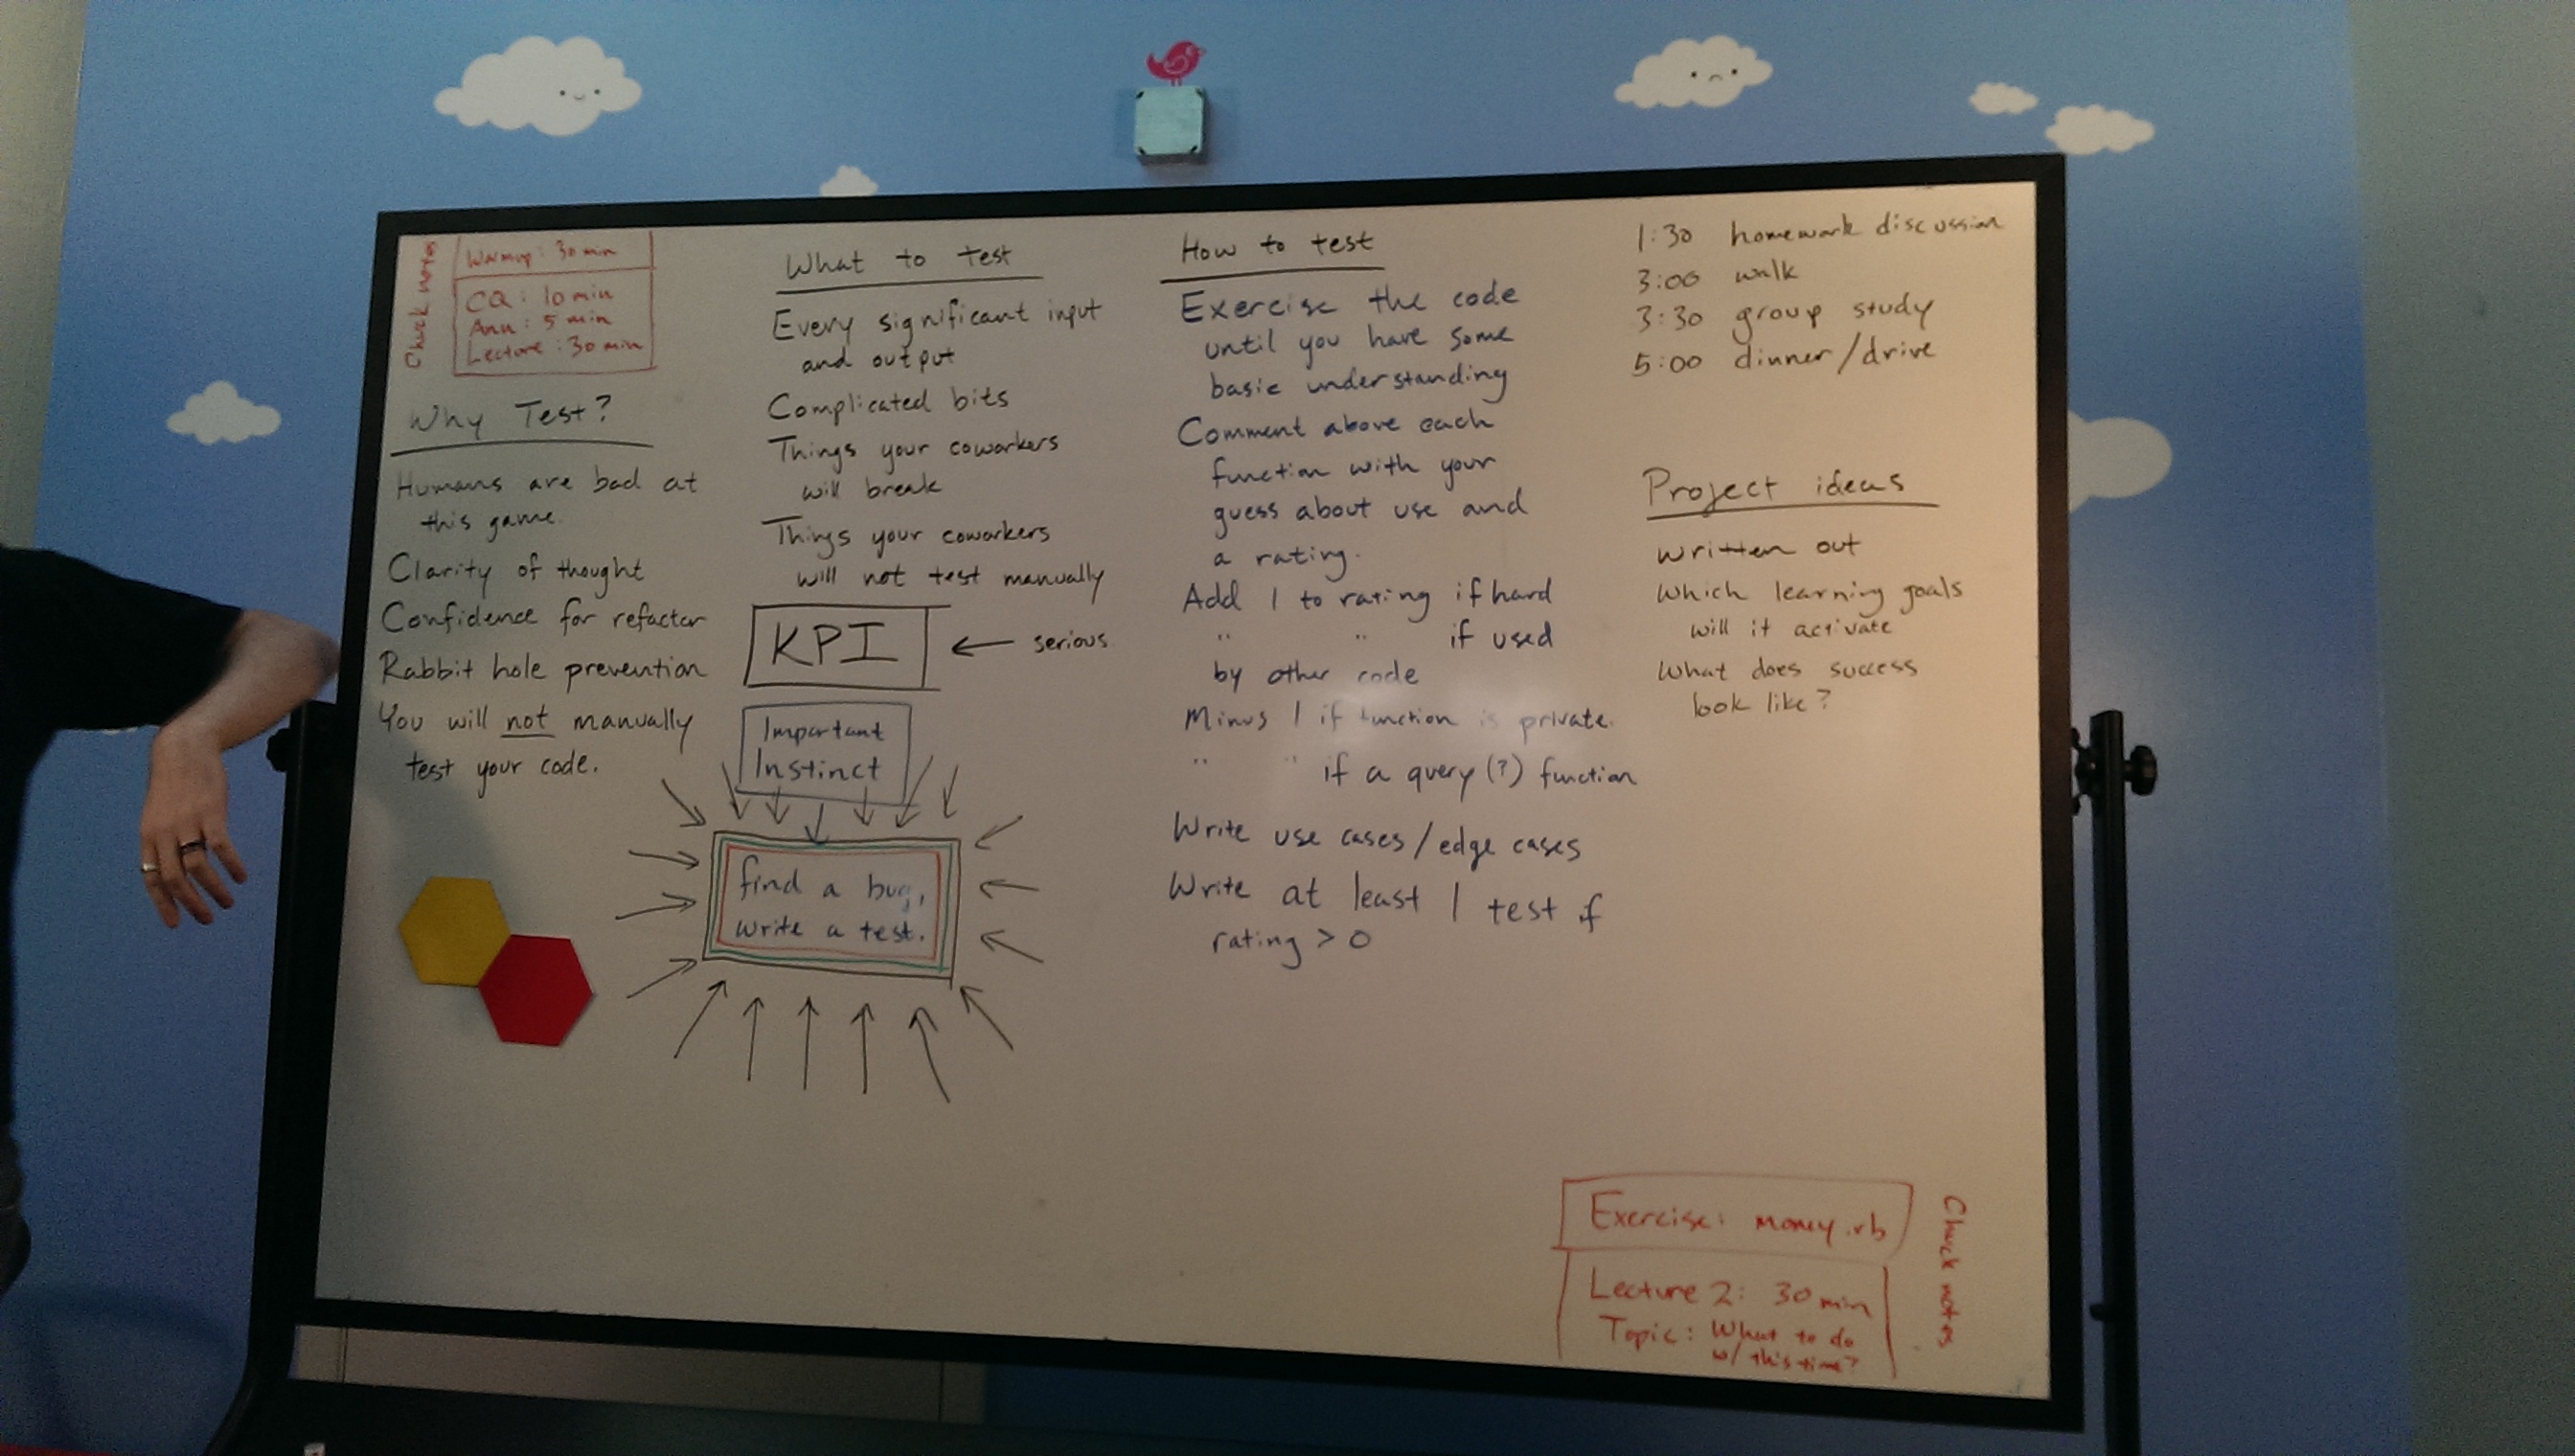 Chuck notes
Warmup: 30 min
CQ: 10 min
Ann: 5 min
Lecture: 30 min
Why Test?
Humans are bad at
this game.
Clarity of thought
Confidence for refactor
Rabbit hole prevention
You will not manually
test your code.
What to test
Every significant input
and output
Complicated bits
Things your coworkers
will break
Things your coworkers
will not test manually
KPI ← serious
Important
Instinct
find a bug,
write a test.
How to test
Exercise the code
until you have some
basic understanding
Comment above each
function with your
guess about use and
a rating.
Add 1 to rating if hard
" " if used
by other code
Minus 1 if function is private.
" " if a query (?) function
Write use cases/edge cases
Write at least 1 test if
rating > 0
1:30 homework discussion
3:00 walk
3:30 group study
5:00 dinner/drive
Project ideas
written out
Which learning goals
will it activate
What does success
look like?
Exercise: money.rb
Lecture 2: 30 min
Topic: What to do
w/ this time?
Chuck notes